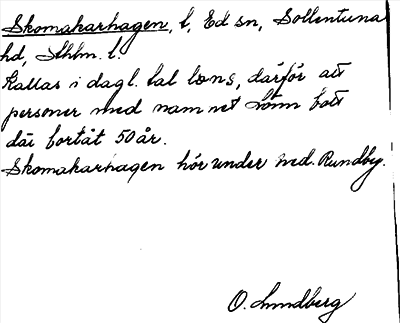 Skomakarhagen, l, Ed sn, Sollentuna
hd, Sthlm. l.
Kallas i dagl. tal, därför att
personer med namnet bott
där bortåt 50 år.
Skomakarhagen hör under Ned. Runby.
O. Lundberg